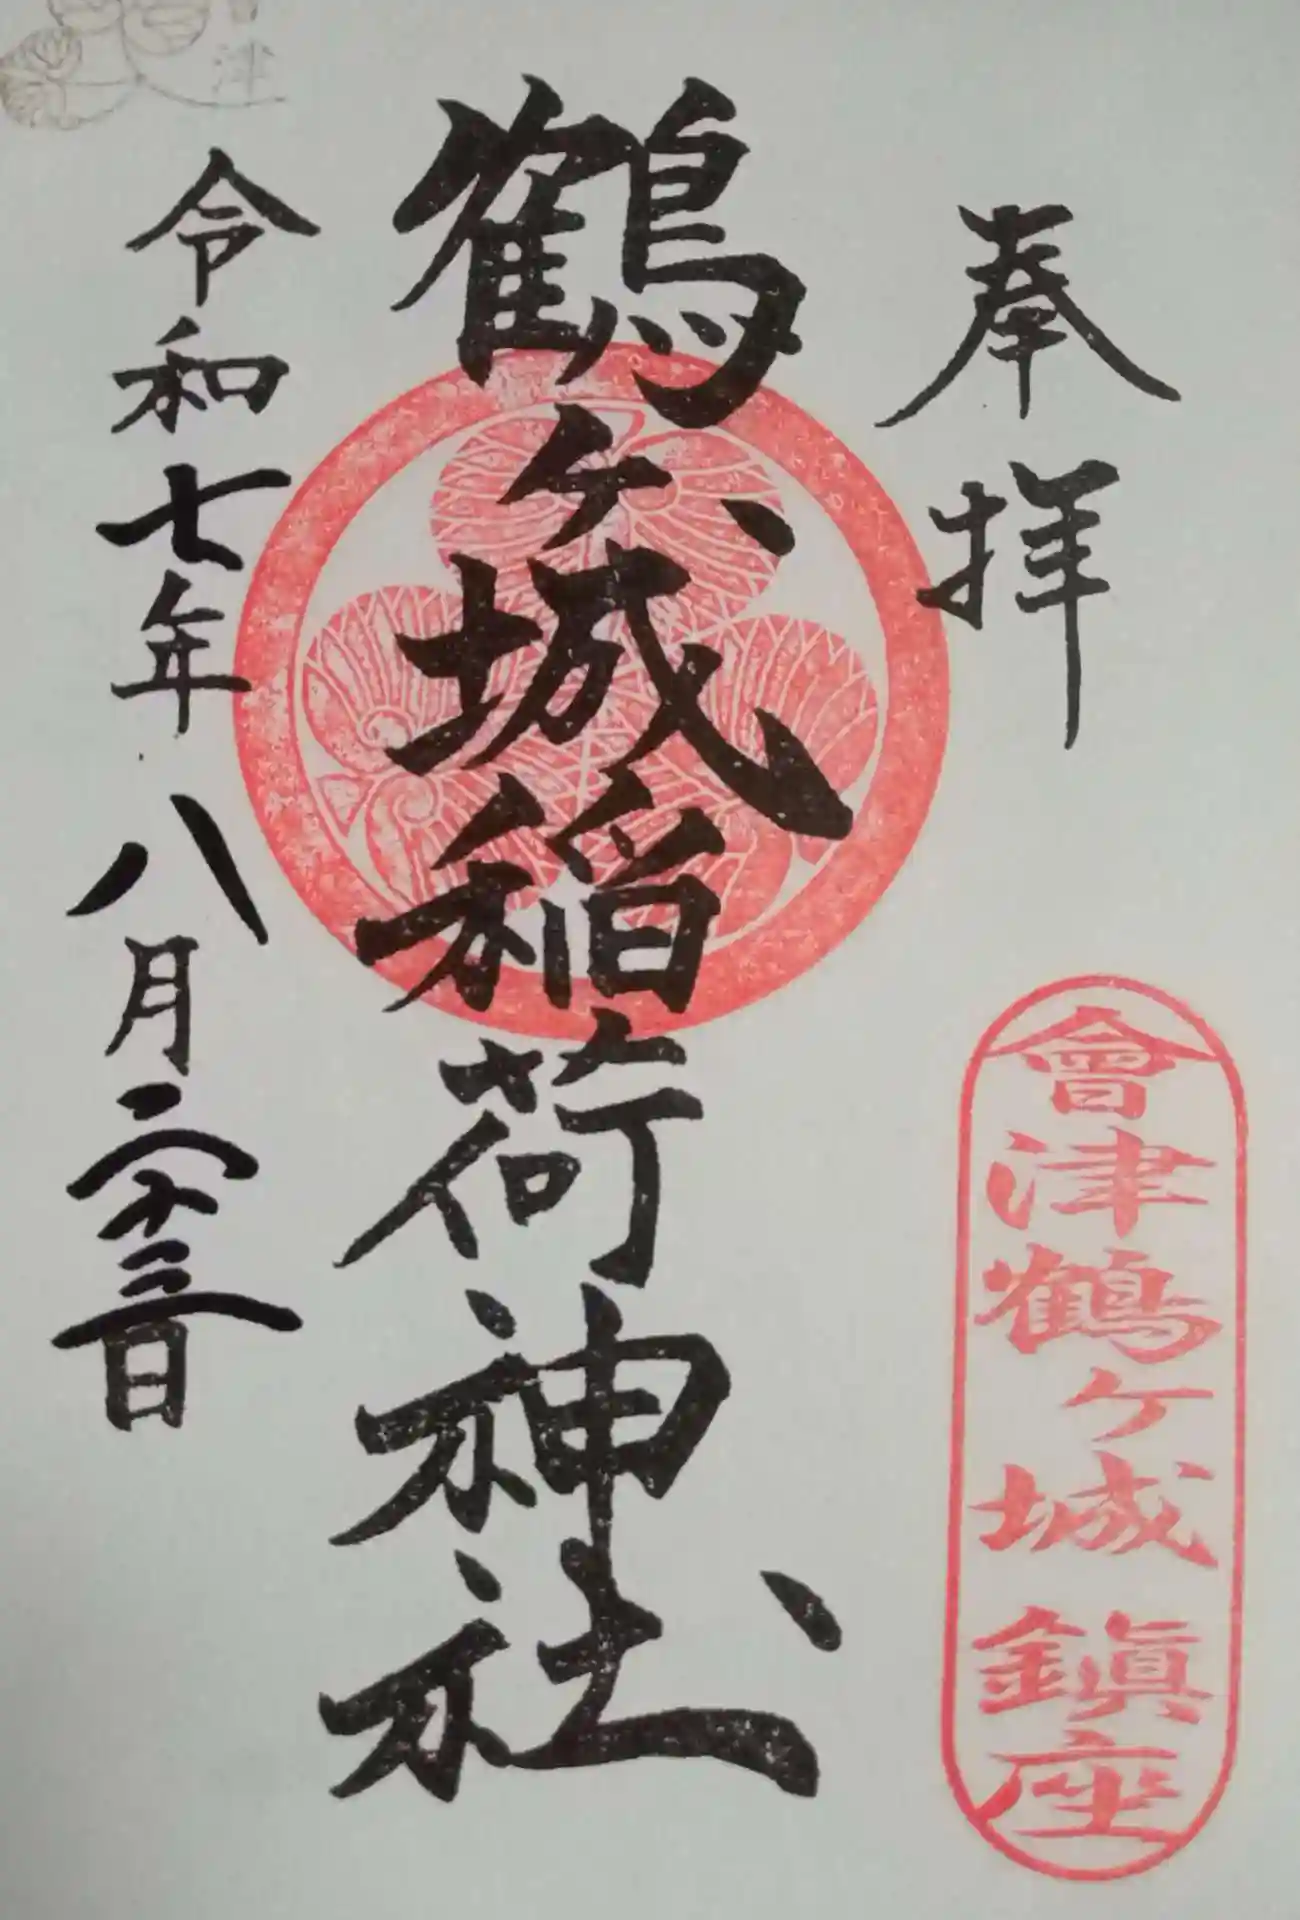 奉拝
會津鶴ヶ城鎮座
鶴ヶ城稲荷神社
令和七年八月二十三日
津